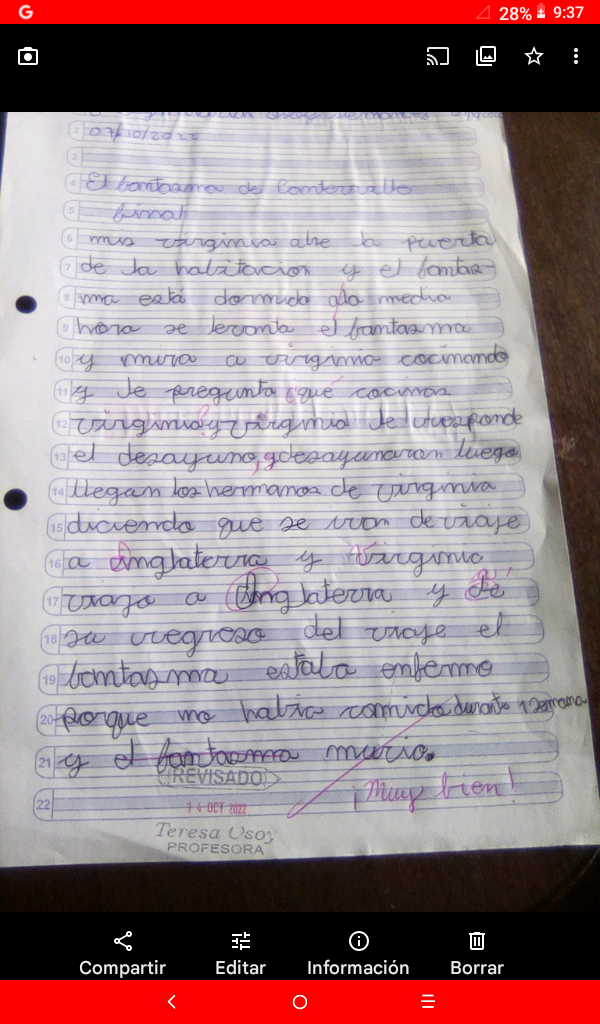 28% 9:37
07/10/2022
El fantasma de Canterville
final
mis virginia abre la puerta
de la habitacion y el fantas-
ma está dormido a la media
hora se levanta el fantasma
y mira a virginia cocinando
y le pregunta ¿qué cocinas
virginia? y virginia le responde
el desayuno, y desayunaron luego
llegan los hermanos de virginia
diciendo que se van de viaje
a Inglaterra y Virginia
viajo a Inglaterra y
su regreso del viaje el
fantasma estaba enfermo
porque no habia comido durante 1 semana
y el fantasma murio.
REVISADO
14 OCT 2022
¡Muy bien!
Teresa Usoy
PROFESORA
Compartir Editar Información Borrar